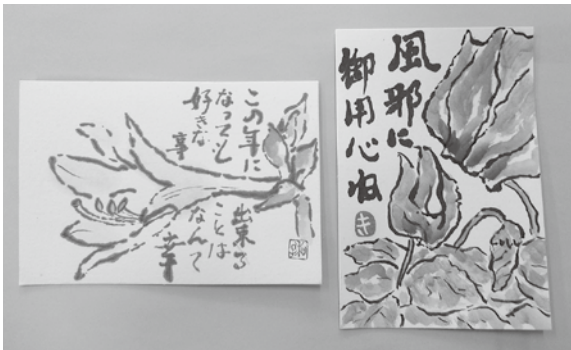 この年に
なっても
好きな
事
出来る
ことは
なんて
幸
風邪に
御用心ね
キ